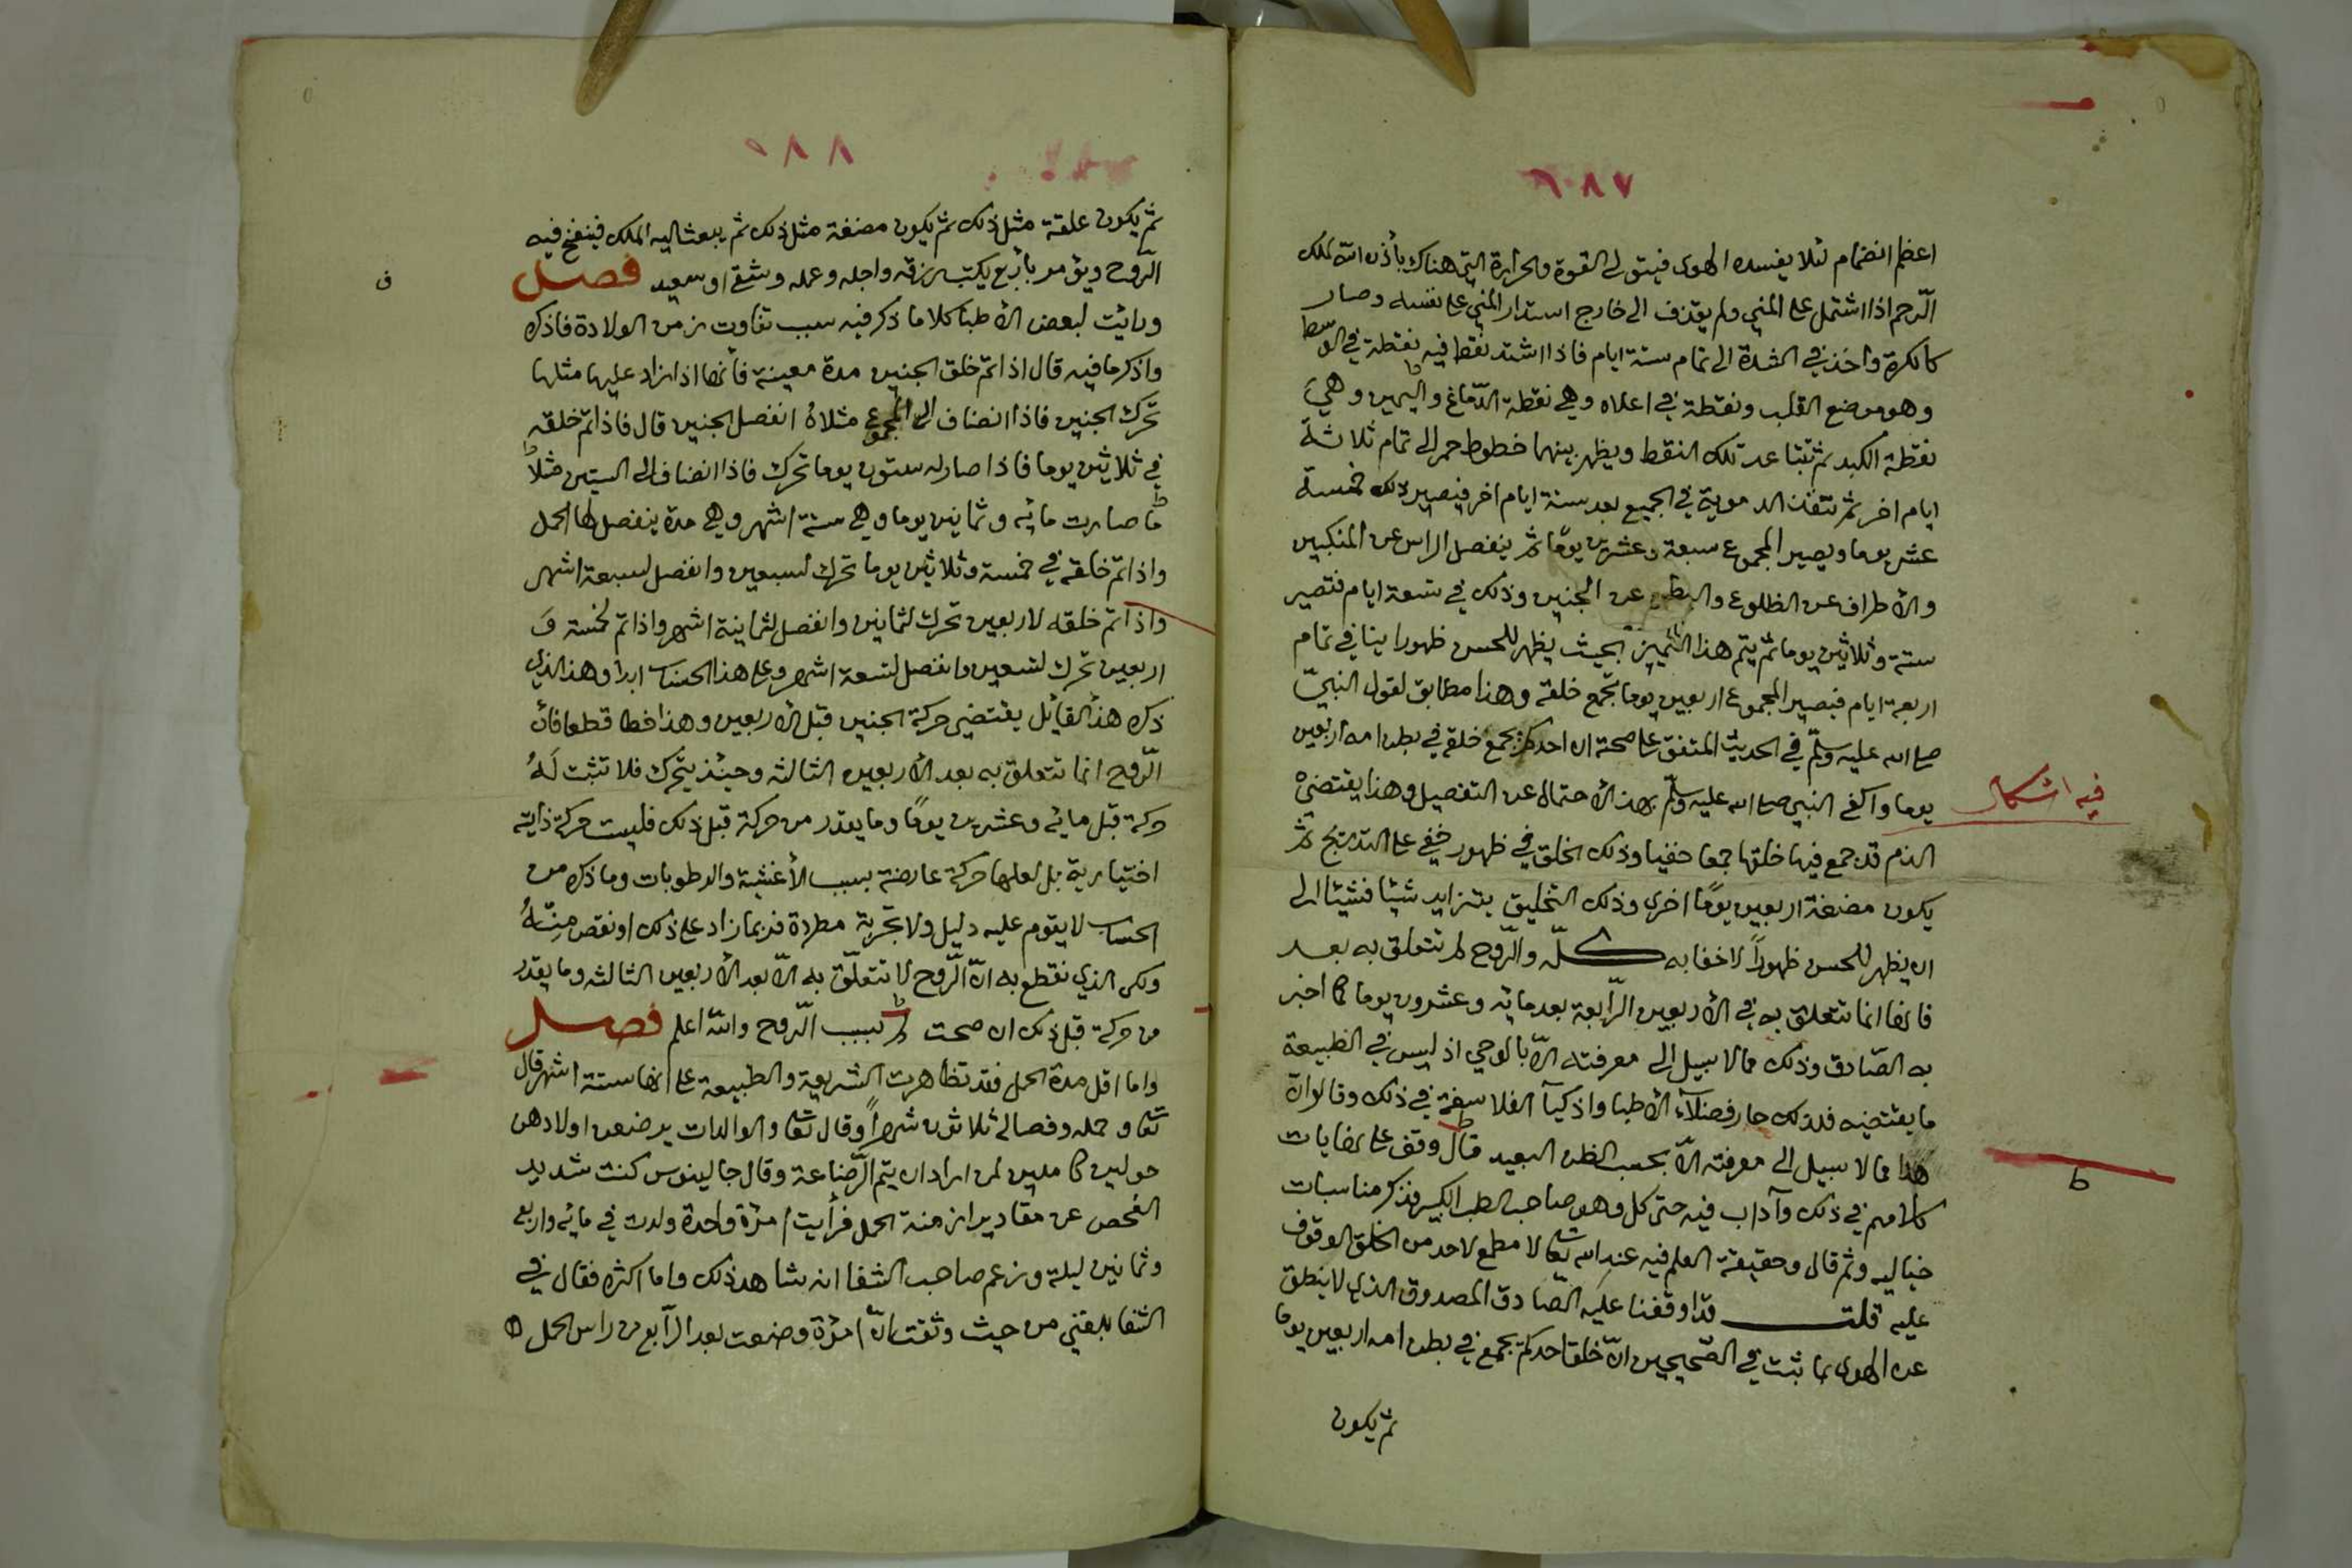 ٦٨٧
اعظم انضمام لئلا يفسده الهوى فيتولى القوة والحرارة التي هناك بأذن الله لملك
الرّحم اذا اشتمل على المني ولم يقذف الى خارج استدار المني على نفسه وصار
كالكرة واخذ في الشدة الى تمام ستة ايام فاذا اشتد نقط فيه نقطة في الوسط
وهو موضع القلب ونقطة في اعلاه وهي نقطة الدّماغ واليمين وهي
نقطة الكبد ثم تتباعد تلك النقط ويظهر بينهما خطوط حمر الى تمام ثلاثة
ايام اخر ثم تنفذ الدموية في الجميع بعد ستة ايام اخر فيصير ذلك خمسة
عشر يوما ويصير المجموع سبعة وعشرين يومًا ثم ينفصل الراس عن المنكبين
والأطراف عن الظلوع والبطن عن الجنين وذلك في تسعة ايام فتصير
ستة وثلاثين يوما ثم يتم هذا التّمييز بحيث يظهر للحسن ظهورا بينا في تمام
اربعة ايام فيصير المجموع اربعين يوما تجمع خلقة وهذا مطابق لقول النبيّ
صلى الله عليه وسلّم في الحديث المتفق على صحته ان احدكم يجمع خلقه في بطن امه اربعين
يوما واكفى النبي صلى الله عليه وسلّم بهذا الأحتمال عن التفصيل وهذا يقتضي
فيه اشكال
الذم قد جمع فيها خلقها جمعا خفيا وذلك الخلق في ظهور خفي على التدريج ثم
يكون مضغة اربعين يومًا اخرى وذلك التخليق يتزايد شيئا فشيئا الى
ان يظهر للحسن ظهوراً لاخفا به كلّه والرّوح لم تتعلق به بعد
فانها انما تتعلق به في الأربعين الرّابعة بعد مائه وعشرون يوما كما اخبر
به الصّادق وذلك مما لا سبيل الى معرفته الاّ بالوحي اذ ليس في الطبيعة
ما يقتضيه فلذلك حار فضلآء الأطبا واذكيآ الفلاسفة في ذلك وقالوا انّ
هذا مما لا سبيل الى معرفته الاّ بحسب الظن البعيد قال وقف على نهايات
ط
كلامهم في ذلك وآداب فيه حتى كل وهو صاحب الطب الكبير فذكر مناسبات
خياليه وثم قال وحقيقة العلم فيه عند الله تعالى لا مطمع لاحد من الخلق الوقوف
عليه قلت قد اوقفنا عليه الصّادق المصدوق الذي لا ينطق
عن الهوى بما ثبت في الصّحيحين انّ خلق احدكم يجمع في بطن امه اربعين يوما
ثم يكون
٨٨
ثم يكون علقة مثل ذلك ثم يكون مضغة مثل ذلك ثم يبعث اليه الملك فينفخ فيه
الرّوح ويؤمر بأربع يكتب رزقه واجله وعمله وشقي او سعيد فصل
ف
ورائت لبعض الأطبا كلاما ذكر فيه سبب تفاوت زمن الولادة فاذكره
واذكر ما فيه قال اذا تم خلق الجنين مدة معينة فأنها اذا زاد عليها مثلها
تحرّك الجنين فاذا انضاف الى المجموع مثلاهُ انفصل الجنين قال فاذا تم خلقه
في ثلاثين يوما فاذا صار له ستون يوما تحرك فاذا انضاف الى الستين مثلا
ها صارت مائه وثمانين يوما وهي ستة اشهر وهي مدة ينفصل لها الحمل
واذا تم خلقه في خمسة وثلاثين يوما تحرك لسبعين وانفصل لسبعة اشهر
واذا تم خلقه لاربعين تحرك لثمانين وانفصل لثمانية اشهر واذا تم لخمسة وَ
اربعين تحرك لتسعين وانفصل لتسعة اشهر وعلى هذا الحساب ابدا وهذا الذي
ذكره هذا القائل يقتضي حركة الجنين قبل الأربعين وهذا خطا قطعا فان
الرّوح انما تتعلق به بعد الأربعين الثالثه وحينئذ يتحرك فلا تثبت لَهُ
حركة قبل مائه وعشرين يومًا وما يقدر من حركة قبل ذلك فليست حركة ذاتية
اختيارية بل لعلها حركة عارضة بسبب الأغشية والرطوبات وما ذكره من
الحساب لا يقوم عليه دليل ولا تجربة مطردة فربما زاد على ذلك او نقص مِنْهُ
ولكن الذي نقطع به انّ الرّوح لا تتعلّق به الاّ بعد الأربعين الثالثه وما يقدر
من حركة قبل ذلك ان صحت لم بسبب الرّوح والله اعلم فصل
واما اقل مدة الحمل فقد تظاهرت الشريعة والطبيعة على انها ستة اشهر قال
تعالى وحمله وفصاله ثلاثون شهراً وقال تعالى والوالدات يرضعن اولادهن
حولين كاملين لمن اراد ان يتم الرّضاعة وقال جالينوس كنت شديد
الفحص عن مقادير ازمنة الحمل فرأيت امرة واحدة ولدت في مائه واربع
وثمانين ليلة وزعم صاحب الشفا انه شاهد ذلك واما اكثره فقال في
الشفا بلغني من حيث وثقت انّ امرة وضعت بعد الرّابع من راس الحمل